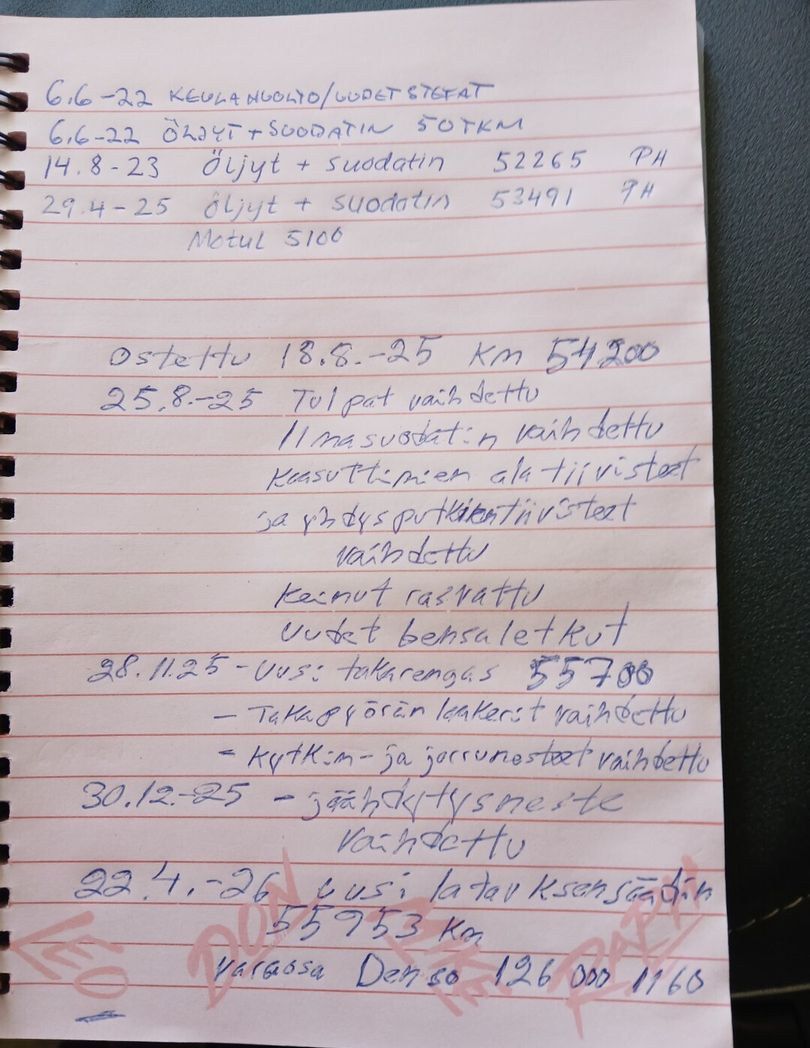 6.6-22 KEULAHUOLTO/UUDET STEFAT
6.6-22 ÖLJYT + SUODATIN 50TKM
14.8-23 Öljyt + suodatin 52265 PH
29.4-25 Öljyt + suodatin 53491 PH
Motul 5100
Ostettu 18.8.-25 Km 54200
25.8.-25 Tulpat vaihdettu
Ilmasuodatin vaihdettu
Kaasuttimien alatiivisteet
ja yhdysputkien tiivisteet
vaihdettu
Keinut rasvattu
Uudet bensaletkut
28.11.25 - Uusi takarengas 55700
- Takapyörän laakerit vaihdettu
- Kytkin- ja jarrunesteet vaihdettu
30.12.-25 - jäähdytysneste
vaihdettu
22.4.-26 uusi latauksensäädin
55953 Km
varaosa Denso 126000 1160
LEO DON MIKE RAPH